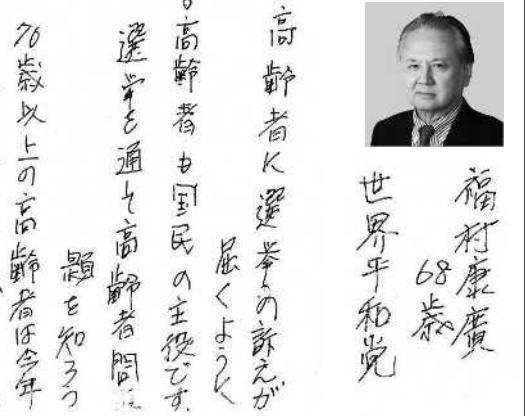 福村康廣
68歳
世界平和党
高齢者に選挙の訴えが
届くように
高齢者も国民の主役です
選挙を通して高齢者問
題を知ろう
70歳以上の高齢者は今年